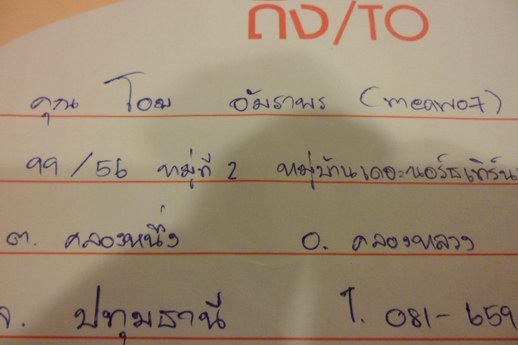 ถึง/TO
คุณ โอม อัมราพร (mean07)
99/56 หมู่ที่ 2 หมู่บ้านเดอะนอร์ธเทิร์น
ต. คลองหนึ่ง อ. คลองหลวง
จ. ปทุมธานี โ. 081-659